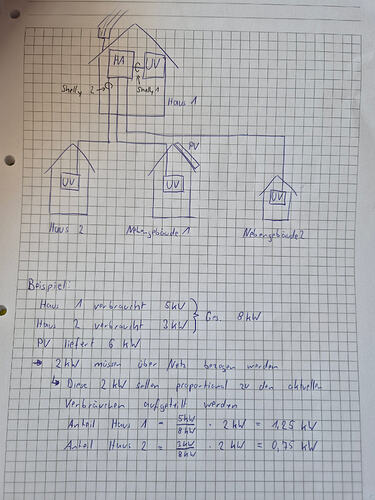 HA
UV
Shelly 2
Shelly 1
Haus 1
PV
UV
UV
UV
Haus 2
Nebengebäude 1
Nebengebäude 2
Beispiel:
Haus 1 verbraucht 5kW
Haus 2 verbraucht 3kW
Ges. 8kW
PV liefert 6 kW
→ 2kW müssen über Netz bezogen werden
↳ Diese 2 kW sollen proportional zu den aktuellen
Verbräuchen aufgeteilt werden
Anteil Haus 1 = 5kW/8kW · 2 kW = 1,25 kW
Anteil Haus 2 = 3kW/8kW · 2 kW = 0,75 kW